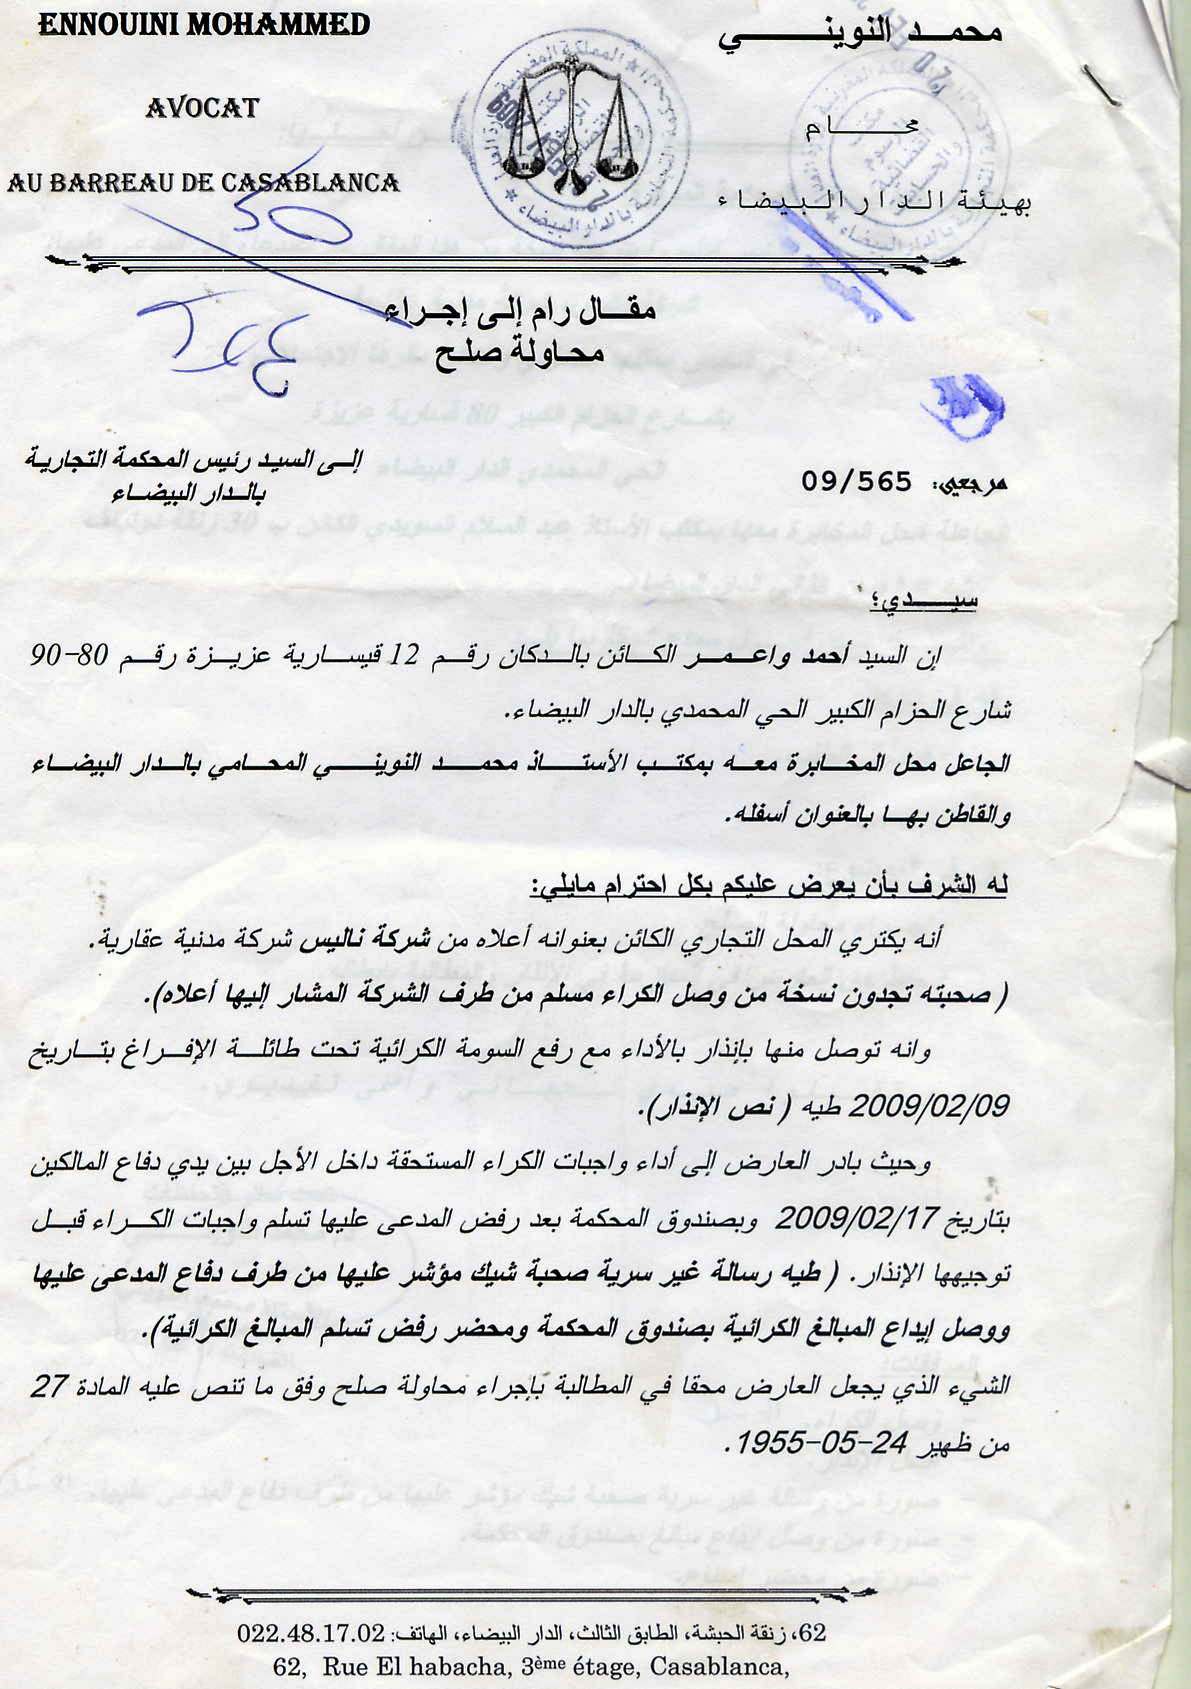 ENNOUINI MOHAMMED
AVOCAT
AU BARREAU DE CASABLANCA
محمد النويني
محام
بهيئة الدار البيضاء
مقال رام إلى إجراء
محاولة صلح
مرجعي: 09/565
إلى السيد رئيس المحكمة التجارية
بالدار البيضاء
سيدي؛
إن السيد أحمد واعمر الكائن بالدكان رقم 12 قيسارية عزيزة رقم 80-90
شارع الحزام الكبير الحي المحمدي بالدار البيضاء.
الجاعل محل المخابرة معه بمكتب الأستاذ محمد النويني المحامي بالدار البيضاء
والقاطن بها بالعنوان أسفله.
له الشرف بأن يعرض عليكم بكل احترام مايلي:
أنه يكتري المحل التجاري الكائن بعنوانه أعلاه من شركة ناليس شركة مدنية عقارية.
( صحبته تجدون نسخة من وصل الكراء مسلم من طرف الشركة المشار إليها أعلاه).
وانه توصل منها بإنذار بالأداء مع رفع السومة الكرائية تحت طائلة الإفراغ بتاريخ
2009/02/09 طيه ( نص الإنذار).
وحيث بادر العارض إلى أداء واجبات الكراء المستحقة داخل الأجل بين يدي دفاع المالكين
بتاريخ 2009/02/17 وبصندوق المحكمة بعد رفض المدعى عليها تسلم واجبات الكراء قبل
توجيهها الإنذار. ( طيه رسالة غير سرية صحبة شيك مؤشر عليها من طرف دفاع المدعى عليها
ووصل إيداع المبالغ الكرائية بصندوق المحكمة ومحضر رفض تسلم المبالغ الكرائية).
الشيء الذي يجعل العارض محقا في المطالبة بإجراء محاولة صلح وفق ما تنص عليه المادة 27
من ظهير 24-05-1955.
62، زنقة الحبشة، الطابق الثالث، الدار البيضاء، الهاتف: 022.48.17.02
62, Rue El habacha, 3ème étage, Casablanca,